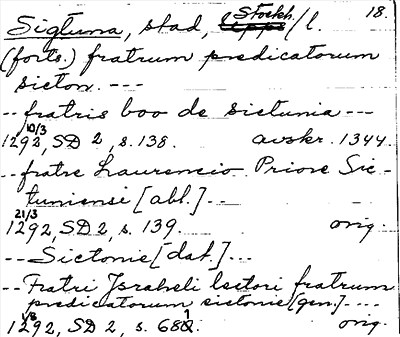 Sigtuna, stad, Stockh. l. 18.
(forts.) fratrum predicatorum
sicton. ---
-- fratris boo de sictunia ---
10/3
1292, SD 2, s. 138. avskr. 1344.
-- fratre Laurencio Priore Sic-
tuniensi [abl.] --
21/3
1292, SD 2, s. 139. orig.
-- Sictonie [dat.] ---
-- Fratri Israheli lectori fratrum
predicatorum sictonie [gen.] ----
1/8
1292, SD 2, s. 681. orig.